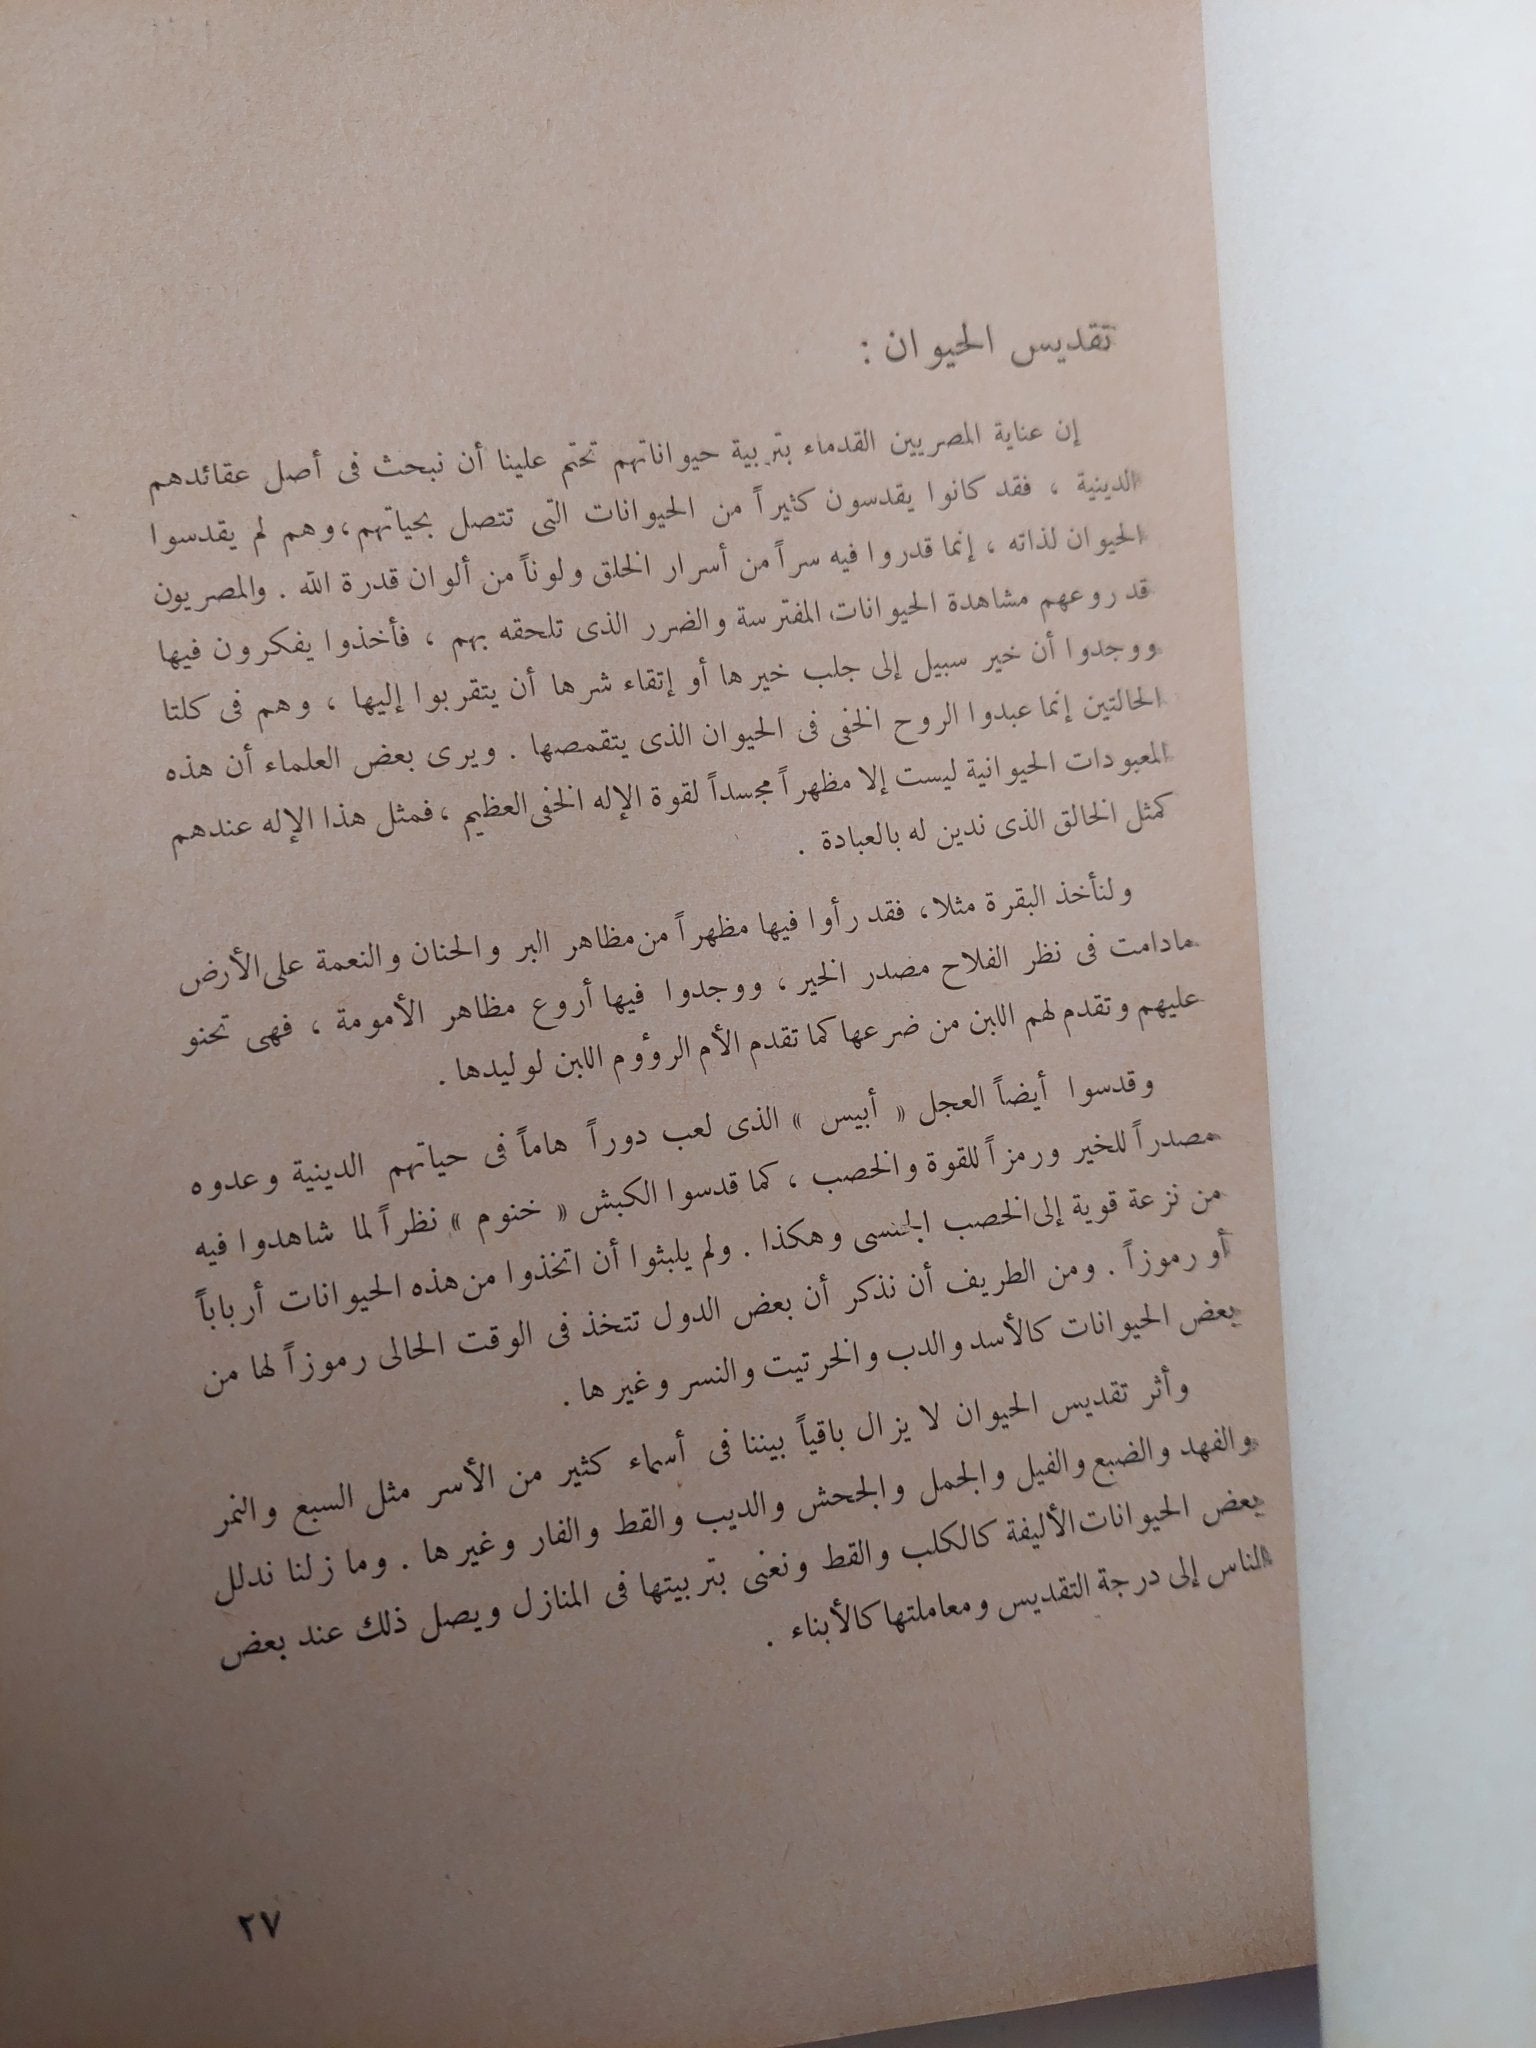 تقديس الحيوان :
إن عناية المصريين القدماء بتربية حيواناتهم تحتم علينا أن نبحث فى أصل عقائدهم
الدينية ، فقد كانوا يقدسون كثيراً من الحيوانات التى تتصل بحياتهم، وهم لم يقدسوا
الحيوان لذاته ، إنما قدروا فيه سراً من أسرار الخلق ولوناً من ألوان قدرة الله . والمصريون
قد روعهم مشاهدة الحيوانات المفترسة والضرر الذى تلحقه بهم ، فأخذوا يفكرون فيها
ووجدوا أن خير سبيل إلى جلب خيرها أو إتقاء شرها أن يتقربوا إليها ، وهم فى كلتا
الحالتين إنما عبدوا الروح الخفى فى الحيوان الذى يتقمصها . ويرى بعض العلماء أن هذه
المعبودات الحيوانية ليست إلا مظهراً مجسداً لقوة الإله الخفى العظيم ، فمثل هذا الإله عندهم
كمثل الخالق الذى ندين له بالعبادة .
ولنأخذ البقرة مثلا، فقد رأوا فيها مظهراً من مظاهر البر والحنان والنعمة على الأرض
مادامت فى نظر الفلاح مصدر الخير ، ووجدوا فيها أروع مظاهر الأمومة ، فهى تحنو
عليهم وتقدم لهم اللبن من ضرعها كما تقدم الأم الرؤوم اللبن لوليدها .
وقدسوا أيضاً العجل « أبيس » الذى لعب دوراً هاماً فى حياتهم الدينية وعدوه
مصدراً للخير ورمزاً للقوة والخصب ، كما قدسوا الكبش « خنوم » نظراً لما شاهدوا فيه
من نزعة قوية إلى الخصب الجنسى وهكذا . ولم يلبثوا أن اتخذوا من هذه الحيوانات أرباباً
أو رموزاً . ومن الطريف أن نذكر أن بعض الدول تتخذ فى الوقت الحالى رموزاً لها من
بعض الحيوانات كالأسد والدب والخرتيت والنسر وغيرها .
وأثر تقديس الحيوان لا يزال باقياً بيننا فى أسماء كثير من الأسر مثل السبع والنمر
والفهد والضبع والفيل والجمل والجحش والديب والقط والفار وغيرها . وما زلنا ندلل
بعض الحيوانات الأليفة كالكلب والقط ونعنى بتربيتها فى المنازل ويصل ذلك عند بعض
الناس إلى درجة التقديس ومعاملتها كالأبناء .
٢٧